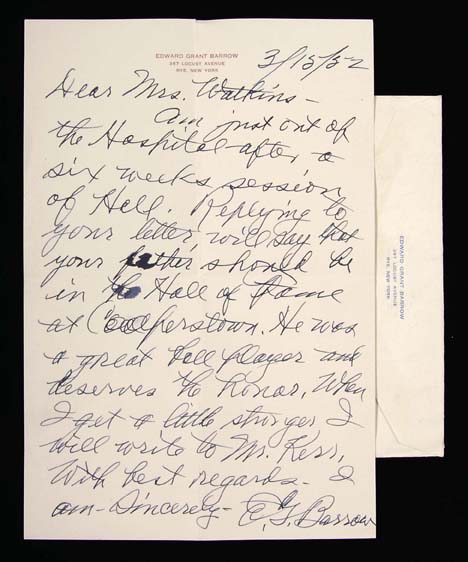 EDWARD GRANT BARROW
367 LOCUST AVENUE
RYE, NEW YORK
3/15/52
Dear Mrs. Watkins -
Am just out of
the Hospital after a
six weeks session
of Hell. Replying to
your letter, will say that
your father should be
in the Hall of Fame
at Cooperstown. He was
a great ball player and
deserves the honor. When
I get a little stronger I
will write to Mr. Kerr.
With best regards - I
am - Sincerely - E. G. Barrow
EDWARD GRANT BARROW
367 LOCUST AVENUE
RYE, NEW YORK